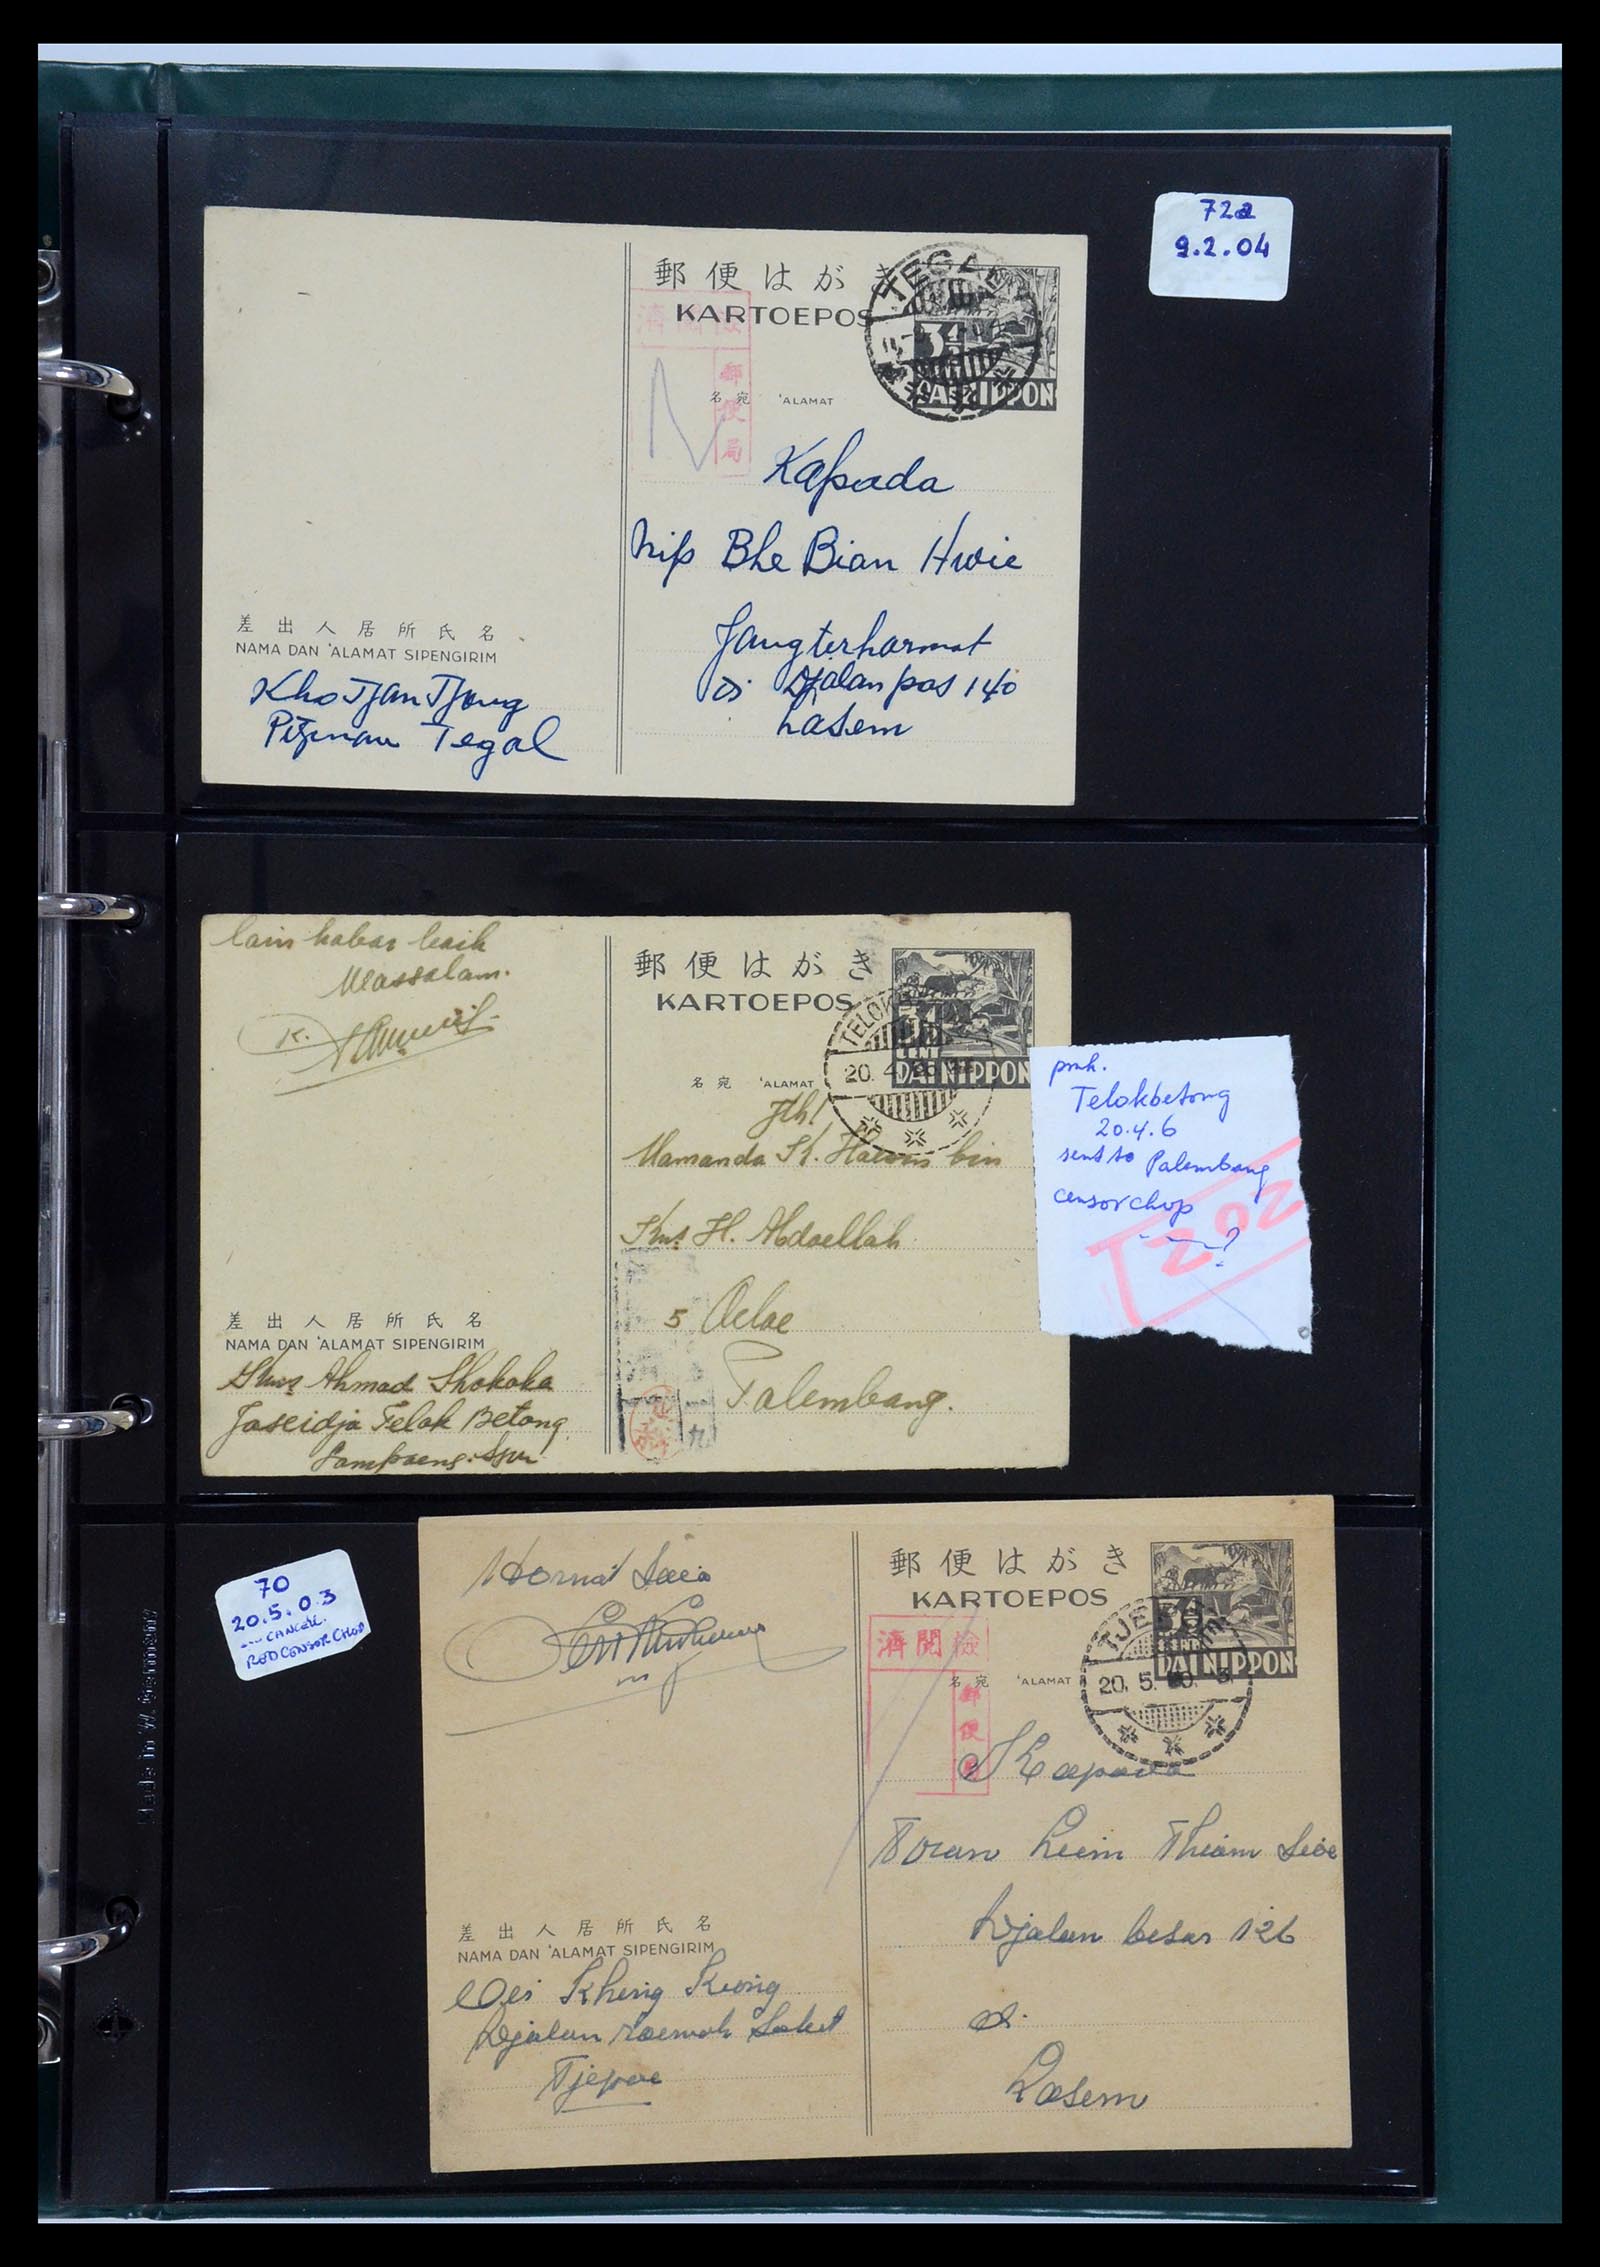 72a
9.2.04
郵便はがき
KARTOEPOS
検閲済
郵便局
TEGAL
3½
DAI NIPPON
名宛 'ALAMAT
Kapada
Nip Bhe Bian Hwie
Jang terharmat
Di Djalan pos 140
Lasem
差出人居所氏名
NAMA DAN 'ALAMAT SIPENGIRIM
Kho Tjan Tjong
Tegal
lain kabar baik
Wassalam.
郵便はがき
KARTOEPOS
TELOK
20. 4.
CENT
DAI NIPPON
名宛 'ALAMAT
Jth!
Mamanda K. bin
Kms H. Abdoellah
5 Oeloe
Palembang.
差出人居所氏名
NAMA DAN 'ALAMAT SIPENGIRIM
Kms Ahmad Shokoha
Telok Betong
pmk.
Telokbetong
20.4.6
sent to Palembang
censor chop
?
202
70
20.5.0.3
CANCEL.
RED CENSOR CHOP
Hormat Saia
郵便はがき
KARTOEPOS
検閲済
郵便局
TJEPOE
20. 5. 3.
3½
DAI NIPPON
名宛 'ALAMAT
Kapada
Toean Liem Thiam Sioe
Djalan besar 126
di
Lasem
差出人居所氏名
NAMA DAN 'ALAMAT SIPENGIRIM
Oei Kheng Kiong
Djalan roemah Saket
Tjepoe
Made in W. Germany